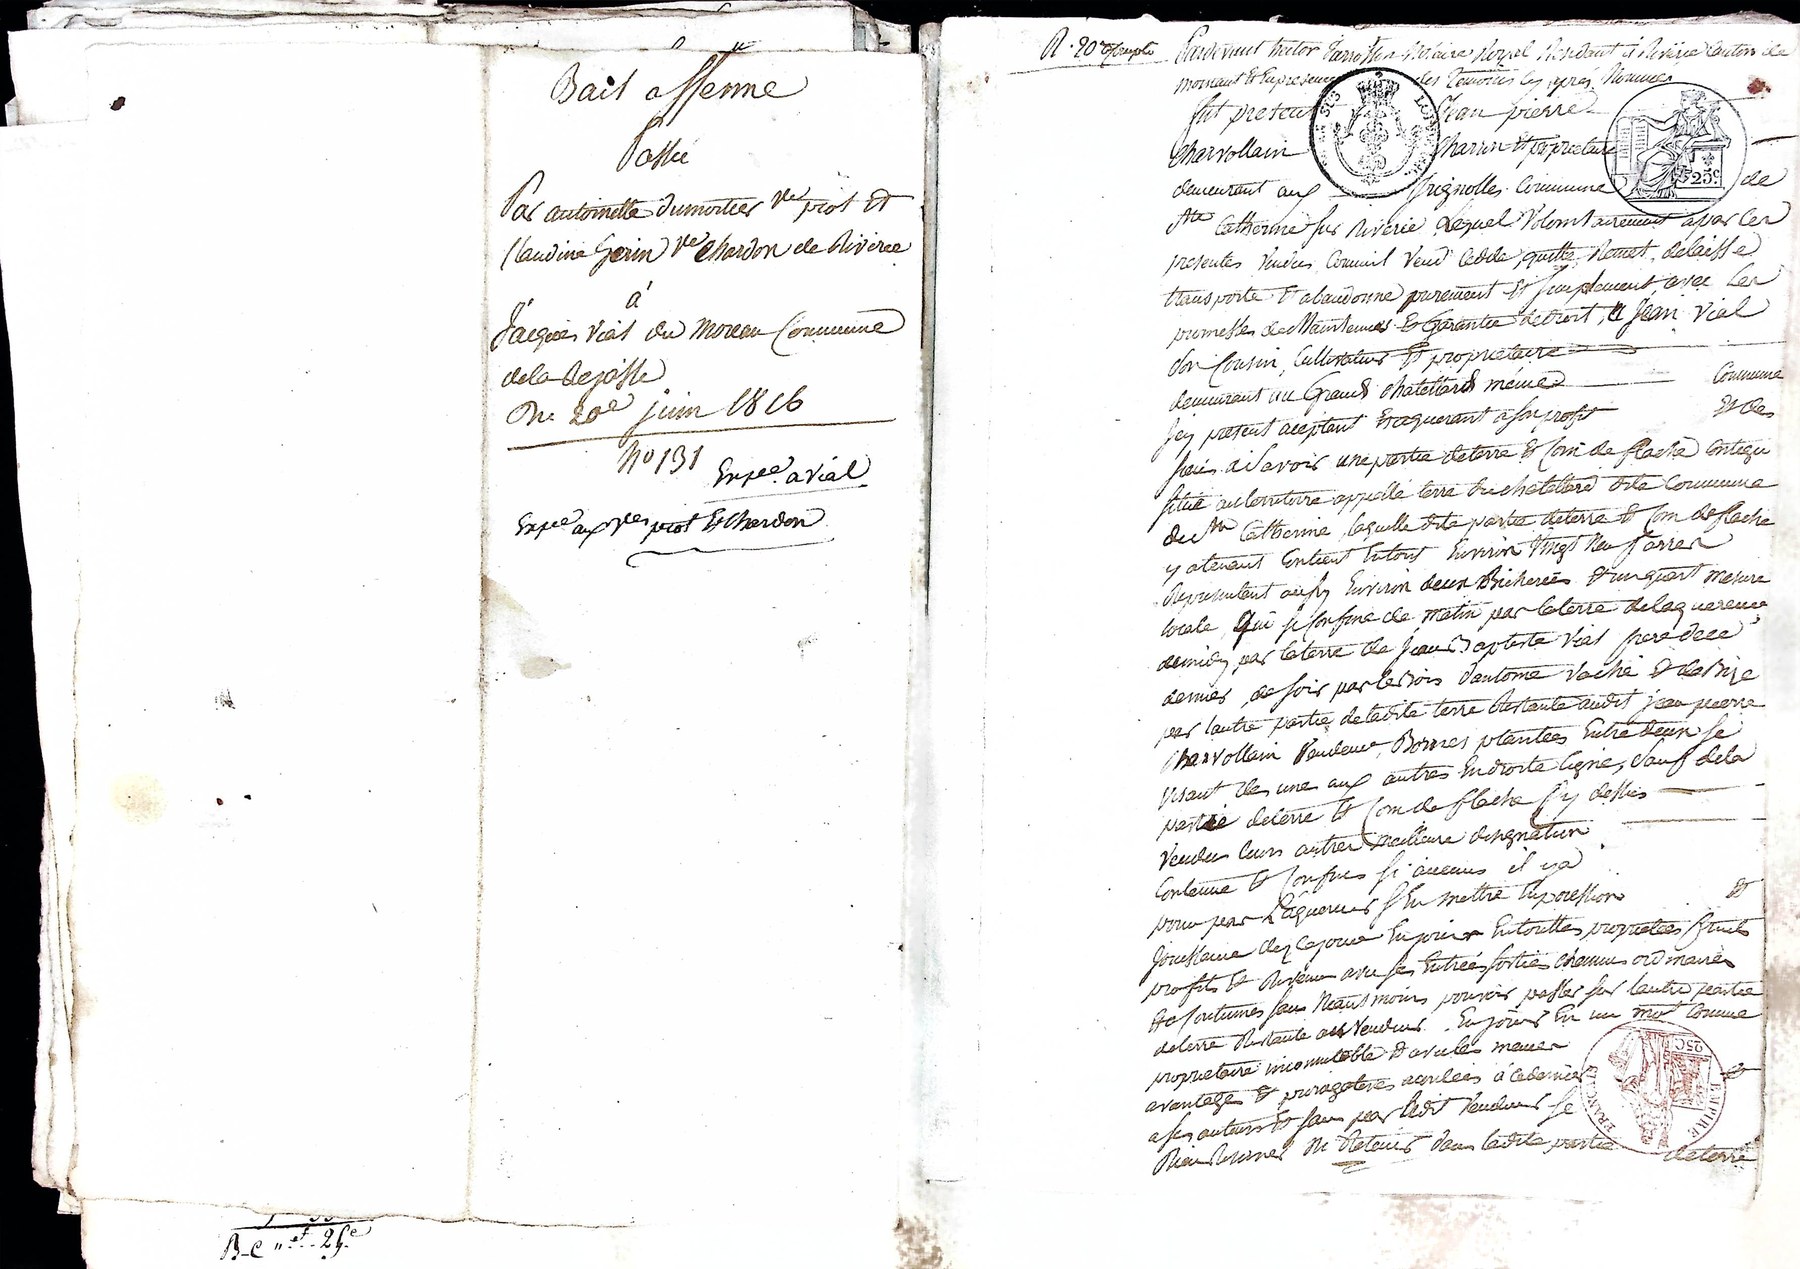 Bail affenne
Passé
Par antoinette Dumortier ve piot Et
Claudine Gerin ve Chardon de Riverie
à
Jacques Vial du Moreau Commune
de la
Du 20e juin 1816
No 131
Expee a Vial
Expee aux ves piot Et Chardon
B-C 25c
R. 20
Pardevant Notaire Royal Residant à Riverie Canton de
mornant Et En presence des Temoins Cy après Nommés
fut present Jean pierre
Charvollain Charron Et proprietaire
demeurant aux Commune de
Ste Catherine sur Riverie Lequel Volontairement a par Ces
presentes Vendu Comme il Vend Cedde quitte Remet delaisse
transporte Et abandonne purement Et simplement avec les
promesses de Maintenues Et Garantie de droit, à Jean Vial
son Cousin, Cultivateur Et proprietaire
demeurant au Grand Chatellard même Commune
Icy present aceptant Et aquerant a son profit Et des
siens a Savoir une partie de terre Et Coin de flache Contigu
situé au territoire appellé terre du Chatellard dite Commune
de Ste Catherine, laquelle dite partie de terre Et Coin de flache
y atenant Contient En tout Environ Vingt Neuf arres
Representant aussy Environ deux Bicherées Et un quart mesure
locale, Qui se Confine de matin par la terre de laquereur
de midy par la terre de Jean Baptiste Vial frere de ce
dernier, de soir par le Bois d'antoine Vaché Et de Bize
par lautre partie de ladite terre Restante audit Jean pierre
Charvollain Vendeur, Bornes plantées Entre deux se
visant les une aux autres En droite ligne, Sauf de la
partie de terre Et Coin de flache Cy dessus
Vendus leurs autres meilleure designation
Contenue Et Confins si aucuns il y a
pour par Laquereur s'En mettre En possession Et
Jouissance dez Ce jour En jouir En touttes proprietées fruits
profits Et Revenu avec ses Entrées sorties chemins ordinaires
Et Coutumes sans Neantmoins pouvoir passer sur lautre partie
de terre Restante au Vendeur. En jouir En un mot Comme
proprietaire incomutable Et avec les memes
avantages Et a ce dernier Et
a ses auteurs Et sans par ledit Vendeur se
Rien Reserver Ni Retenir dans ladite partie
de terre
25C
EMPIRE FRANÇAIS